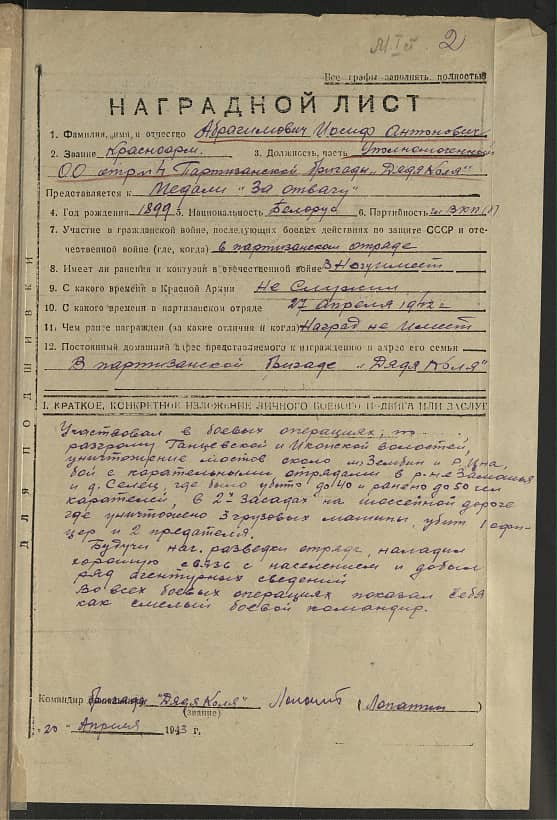 2
Все графы заполнять полностью
НАГРАДНОЙ ЛИСТ
1. Фамилия, имя и отчество Абрагимович Иосиф Антонович
2. Звание Красноарм. 3. Должность, часть Уполномоченный
ОО отр. Партизанской бригады „Дядя Коля"
Представляется к Медали "За отвагу"
4. Год рождения 1899 5. Национальность Белорус 6. Партийность ВКП(б)
7. Участие в гражданской войне, последующих боевых действиях по защите СССР и оте-
чественной войне (где, когда) в партизанском отряде
8. Имеет ли ранения и контузии в отечественной войне
9. С какого времени в Красной Армии Не Служил
10. С какого времени в партизанском отряде 27 апреля 1942 г
11. Чем ранее награжден (за какие отличия и когда) Наград не Имеет
12. Постоянный домашний адрес представляемого к награждению и адрес его семьи
В партизанской бригаде "Дядя Коля"
I. КРАТКОЕ, КОНКРЕТНОЕ ИЗЛОЖЕНИЕ ЛИЧНОГО БОЕВОГО ПОДВИГА ИЛИ ЗАСЛУГ
Участвовал в боевых операциях; по
разгрому и волостей,
уничтожение мостов около м. Зембин и р. Цна,
бой с карательными отрядами в р-не
и д. Селец, где было убито до 40 и ранено до 50 чел
карателей, в 2х засадах на шоссейной дороге
где уничтожено 3 грузовых машины, убит 1 офи-
цер и 2 предателя.
Будучи нач. разведки отряда, наладил
хорошую связь с населением и добыл
ряд агентурных сведений
Во всех боевых операциях показал себя
как смелый боевой командир.
Командир бригады "Дядя Коля" (Лопатин)
(звание)
„20" Апреля 1943 г.
ДЛЯ ПОДШИВКИ